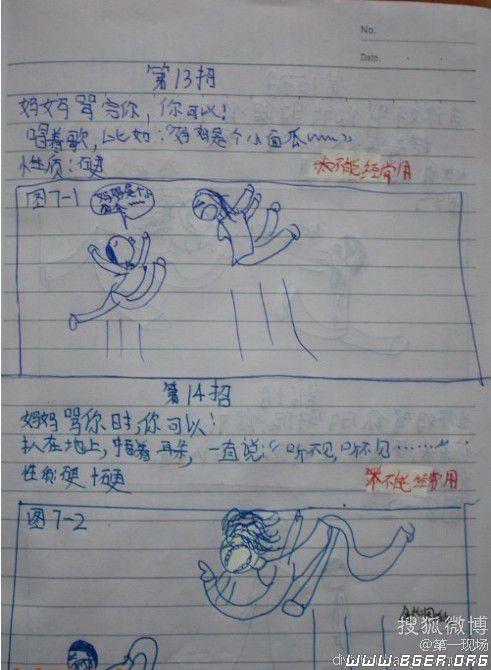 No.
Date.
第13招
妈妈骂完你,你可以!
唱着歌,比如:"妈妈是个小面瓜~~~"
性质:硬
不能经常用
图7-1
妈妈是个
第14招
妈妈骂你时,你可以!
趴在地上,捂着耳朵,一直说:"听不见,听不见……"
性质:硬+硬
不能经常用
图7-2
搜狐微博
@第一现场
WWW.BGER.ORG